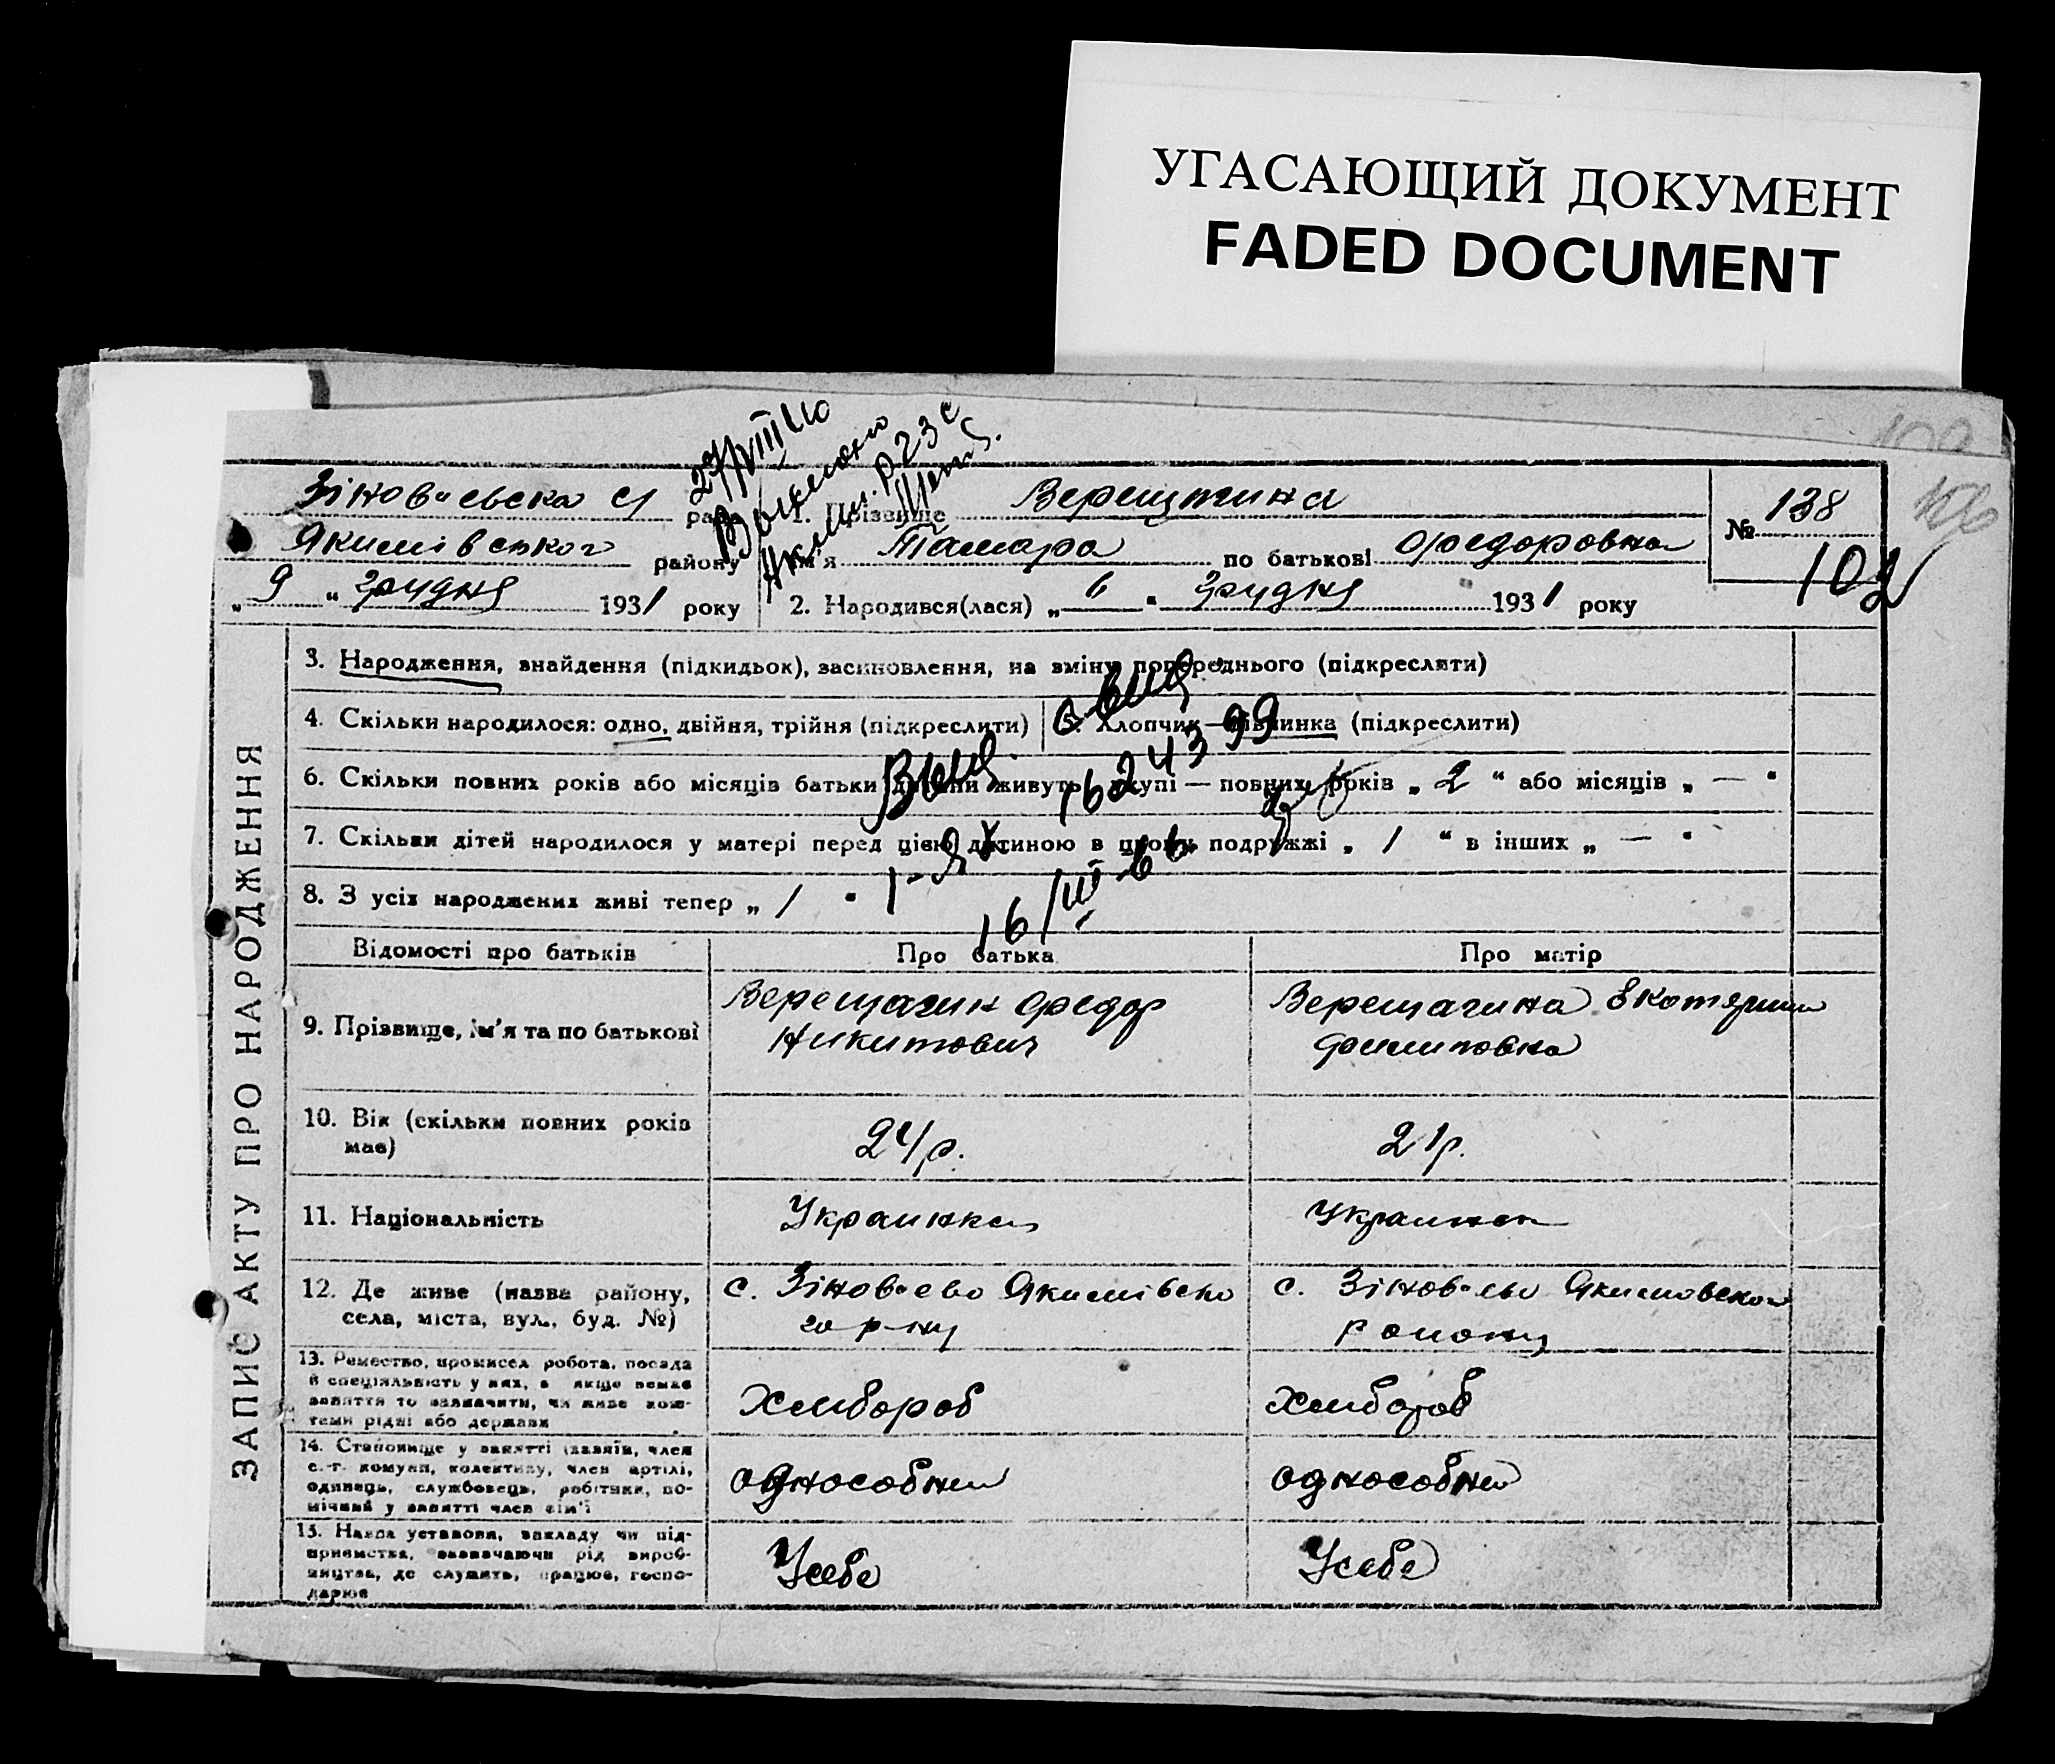 УГАСАЮЩИЙ ДОКУМЕНТ
FADED DOCUMENT
Зінов'євська с/ рада
Якимівского району
„ 9 “ грудня 1931 року
1. Прізвище Верещагина
ім'я Тамара по батькові Федоровна
2. Народився(лася) „ 6 “ грудня 1931 року
№ 138
102
ЗАПИС АКТУ ПРО НАРОДЖЕННЯ
3. Народження, знайдення (підкидьок), засиновлення, на зміну попереднього (підкреслити)
4. Скільки народилося: одно, двійня, трійня (підкреслити)
5. Хлопчик — дівчинка (підкреслити)
6. Скільки повних років або місяців батьки дитини живуть вкупі — повних років „ 2 “ або місяців „ — “
7. Скільки дітей народилося у матері перед цією дитиною в цьому подружжі „ 1 “ в інших „ — “
8. З усіх народжених живі тепер „ 1 “
16/III-66
Відомості про батьків
Про батька
Про матір
9. Прізвище, ім'я та по батькові
Верещагин Федор
Никитович
Верещагина Екатерина
Филиповна
10. Вік (скільки повних років
має)
24 р.
21 р.
11. Національність
Украинка
Украинка
12. Де живе (назва району,
села, міста, вул., буд. №)
с. Зінов'ево Якимівско
го р-ну
с. Зінов'ево Якимовского
району
13. Ремество, промисел робота, посада
й спеціяльність у них, а якщо немає
заняття то зазначити, чи живе кош-
тами рідні або держави
хлибороб
хлибороб
14. Становище у занятті (хазяїн, член
с.-г. комуни, колективу, член артілі,
одинець, службовець, робітник, по-
мічний у занятті член сім'ї
однособни
однособни
15. Назва установи, закладу чи під-
приємства, зазначаючи рід вироб-
ництва, де служить, працює, госпо-
дарює
Усебе
Усебе